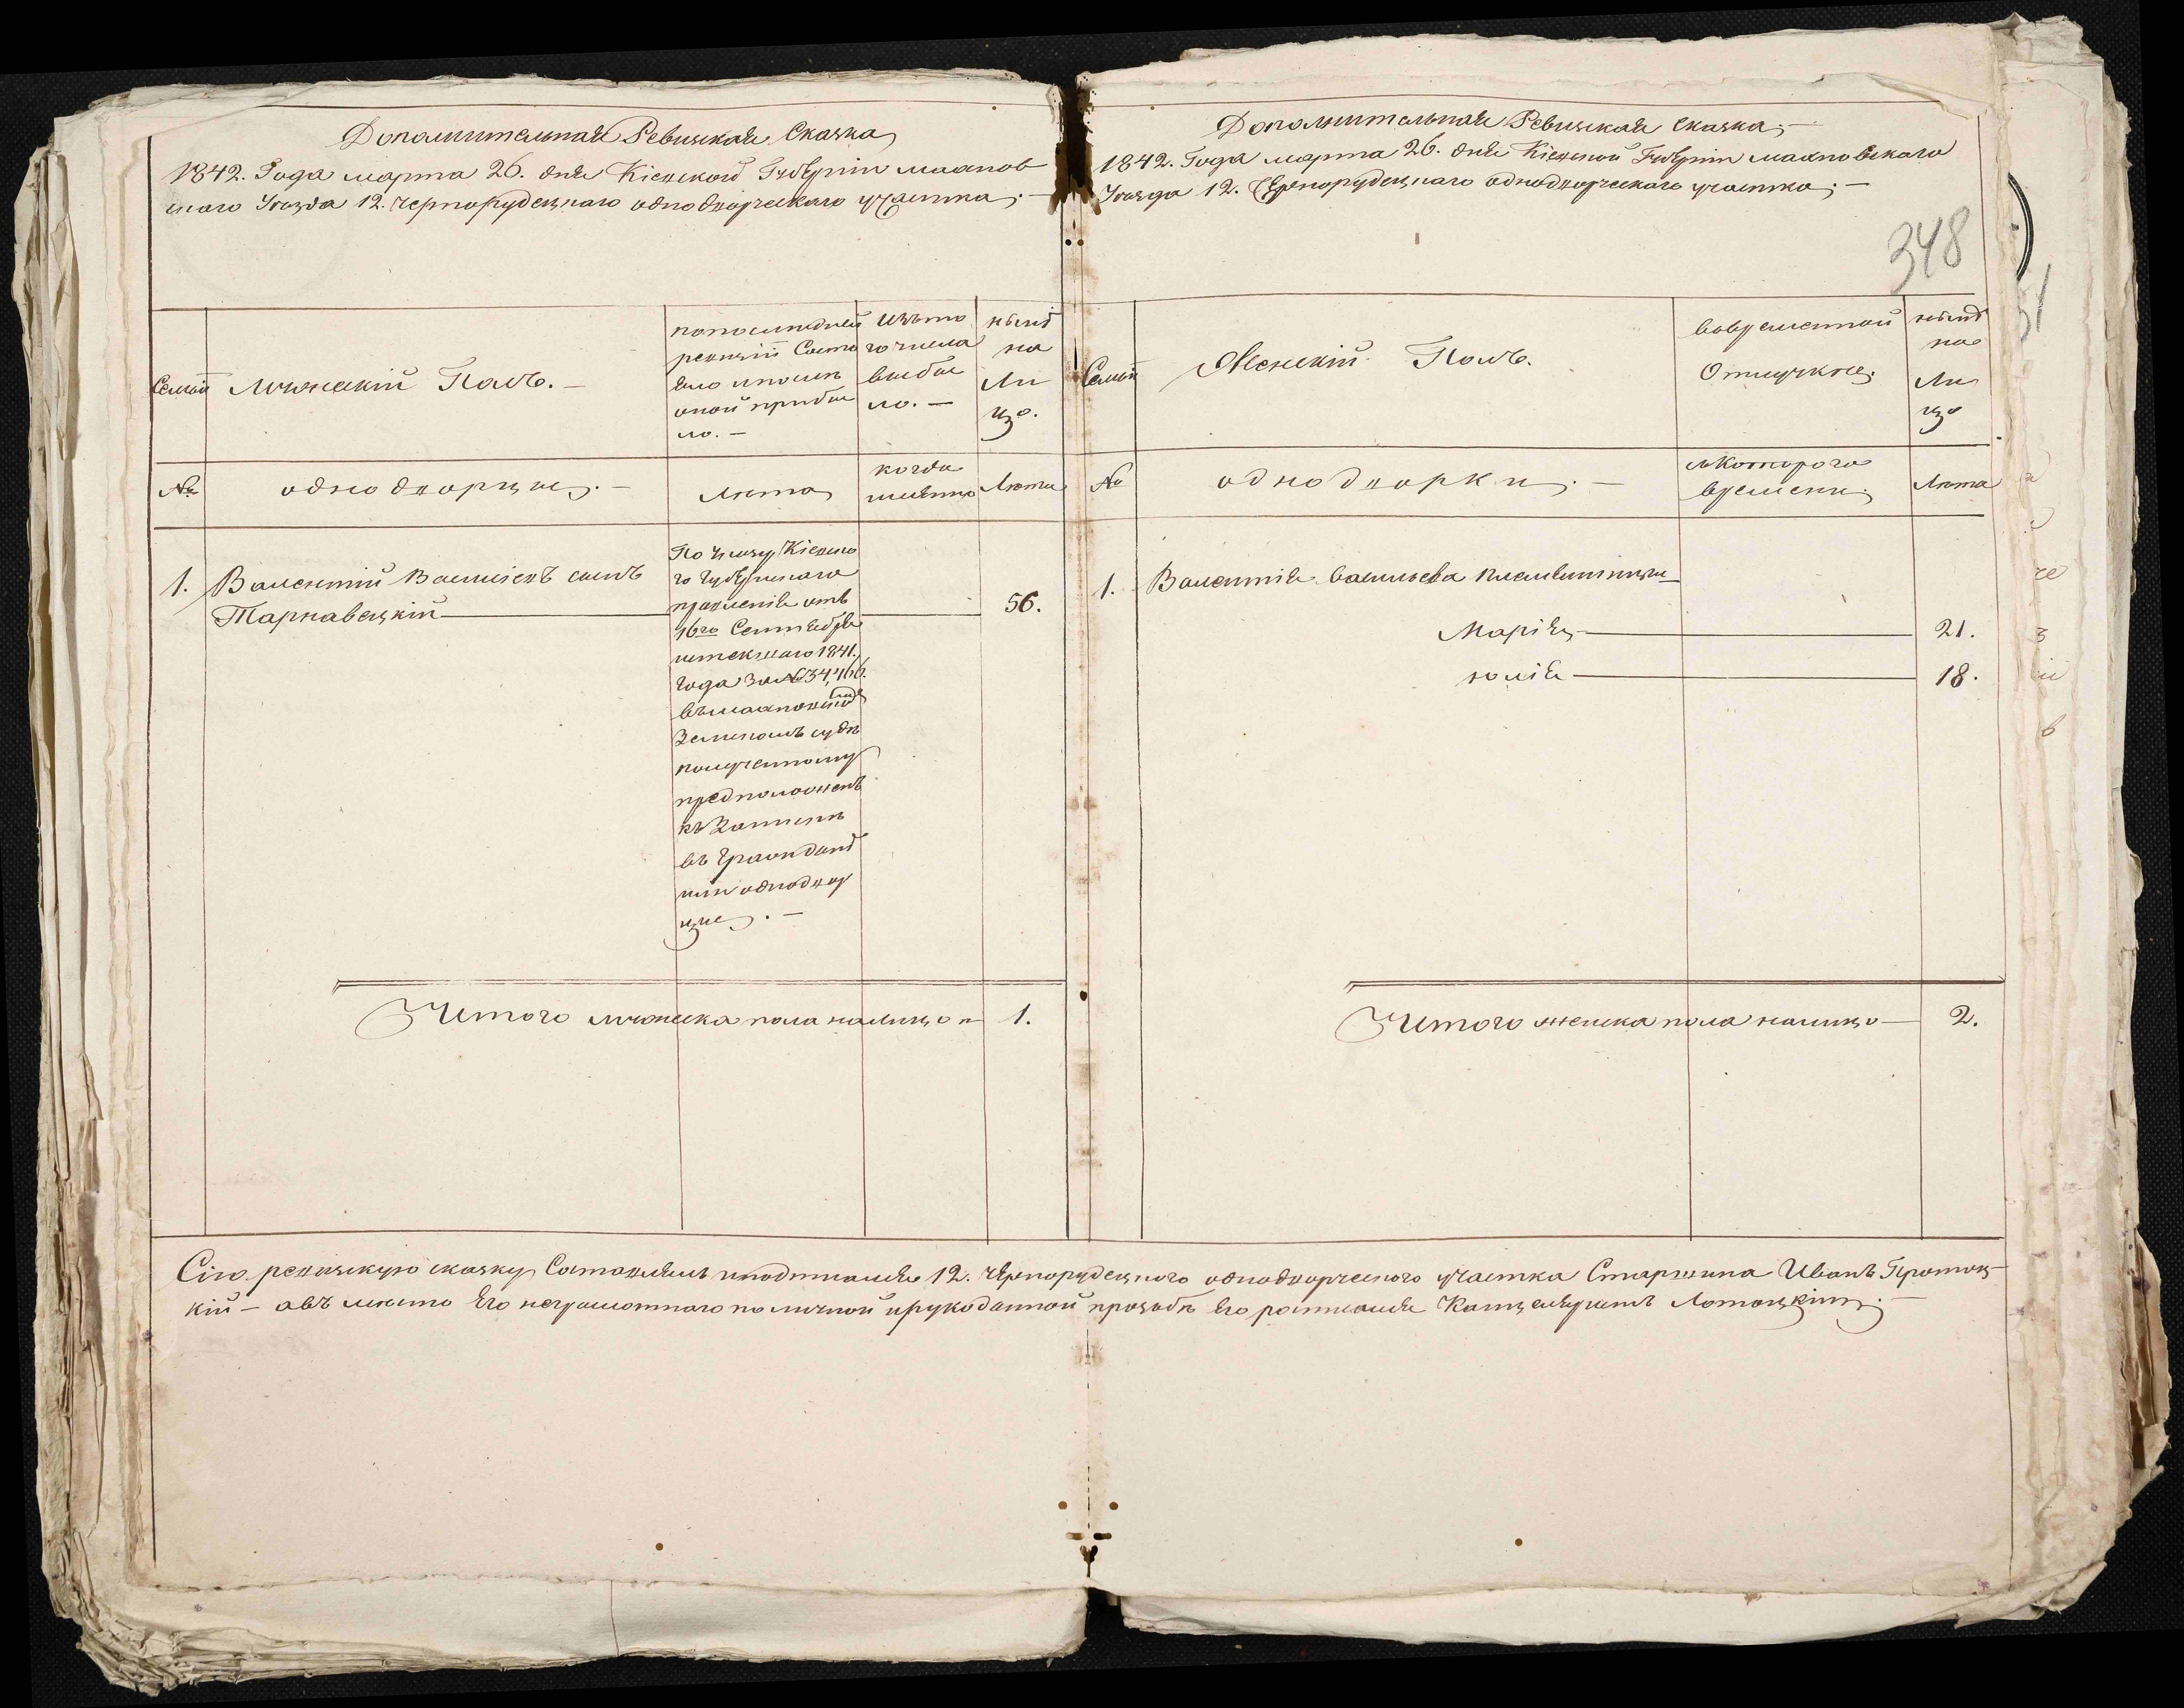 Дополнительная Ревизская Сказка
1842. Года марта 26. дня Кіевской Губерніи махнов
скаго Уезда 12. Чернорудецкаго однодворческаго участка;
Семьи
Мужескій Полъ.
по последней
ревизіи Состо
яло и после
оной прибы
ло.
Изъ то
го числа
выбы
ло.
ныне
на
Ли
цо.
№
однодворцы.
Лета
когда
именно
Лета
1. Валентій Васильевъ сынъ
Тарнавецкій
По Указу Кіевска
го Губернскаго
правленія отъ
16го Сентября
истекшаго 1841.
года за № 34,466.
въ махновском
Земском суде
полученному
предположенъ
къ Записке
въ Граждане
или однодвор
цы.
56.
Итого мужеска пола налицо 1.
Дополнительная Ревизская Сказка;
348
1842. Года марта 26. дня Кіевской Губерніи махновскаго
Уезда 12. Чернорудецкаго однодворческаго участка;
Семьи
Женскій Полъ.
во временной
Отлучке.
ныне
на
Ли
цо
№
однодворки.
съ Котораго
времени
Лета
1. Валентія Васильева племянницы
Марія 21.
юлія 18.
Итого женска пола налицо 2.
Сію ревизскую сказку Составлялъ и подписался 12. Чернорудецкого однодворческого участка Старшина Иванъ Протоц
кій — а въ место Его неграмотнаго по личной и рукоданной прозьбе Его росписался Канцеляристъ Лотоцкій